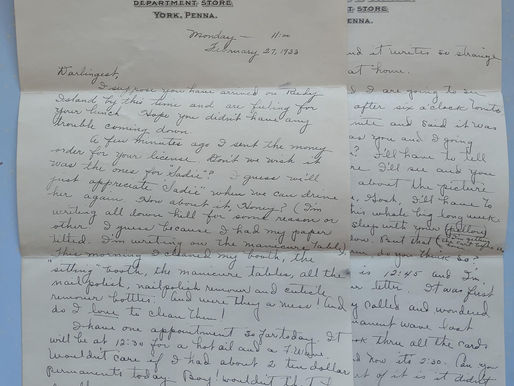 DEPARTMENT STORE
YORK, PENNA.
Monday - 11:00
February 27, 1933
Darlingest,
I suppose you have arrived on Rocky
Island by this time and are fueling for
your lunch. Hope you didn't have any
trouble coming down.
A few minutes ago I sent the money
order for your license. Don't we wish it
was the ones for "Sadie"? I guess we'll
just appreciate "Sadie" when we can drive
her again. How about it, Honey? (I'm
writing all down hill for some reason or
other I guess because I had my paper
tilted. I'm writing on the manicure table).
This morning I cleaned my booth, the
"sitting" booth, the manicure tables, all the
nailpolish, nailpolish remover and cuticle
remover bottles. And were they a mess! And
do I love to clean them!
I have one appointment so far today. It
will be at 12:30 for a hot oil and a F. Wave.
Wouldn't care if I had about 2 ten dollar
permanents today. Boy! wouldn't
YORK, PENNA.
and it writes so strange
at home.
I are going to see
after six o'clock tonite
nite and said it was
as you and I going
? I'll have to tell
I'll see and you
about the picture
Gosh, I'll have to
this whole big long week
sleep with your pillow
now. But that
do you think so?
is 12:45 and I'm
letter. It was first
called and wondered
permanent wave last
took three all the cards
and now its 2:30. Can you
of it is it didn't